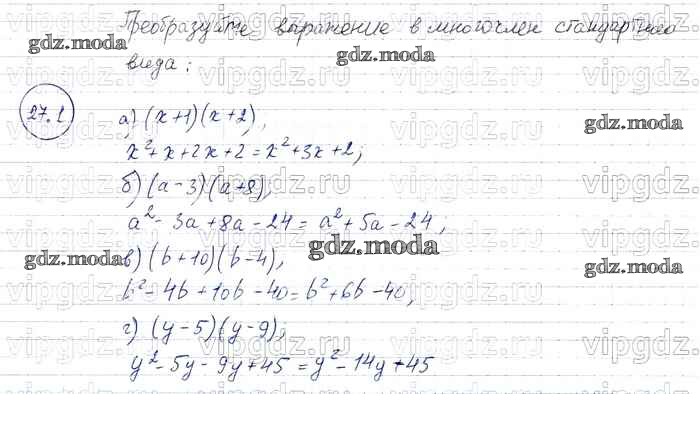 Преобразуйте выражение в многочлен стандартного
вида:
27.1
а) (x+1)(x+2),
x²+x+2x+2=x²+3x+2;
б) (a-3)(a+8),
a²-3a+8a-24=a²+5a-24;
в) (b+10)(b-4),
b²-4b+10b-40=b²+6b-40,
г) (y-5)(y-9);
y²-5y-9y+45=y²-14y+45
gdz.moda
gdz.moda
gdz.moda
gdz.moda
gdz.moda
gdz.moda
vipgdz.ru